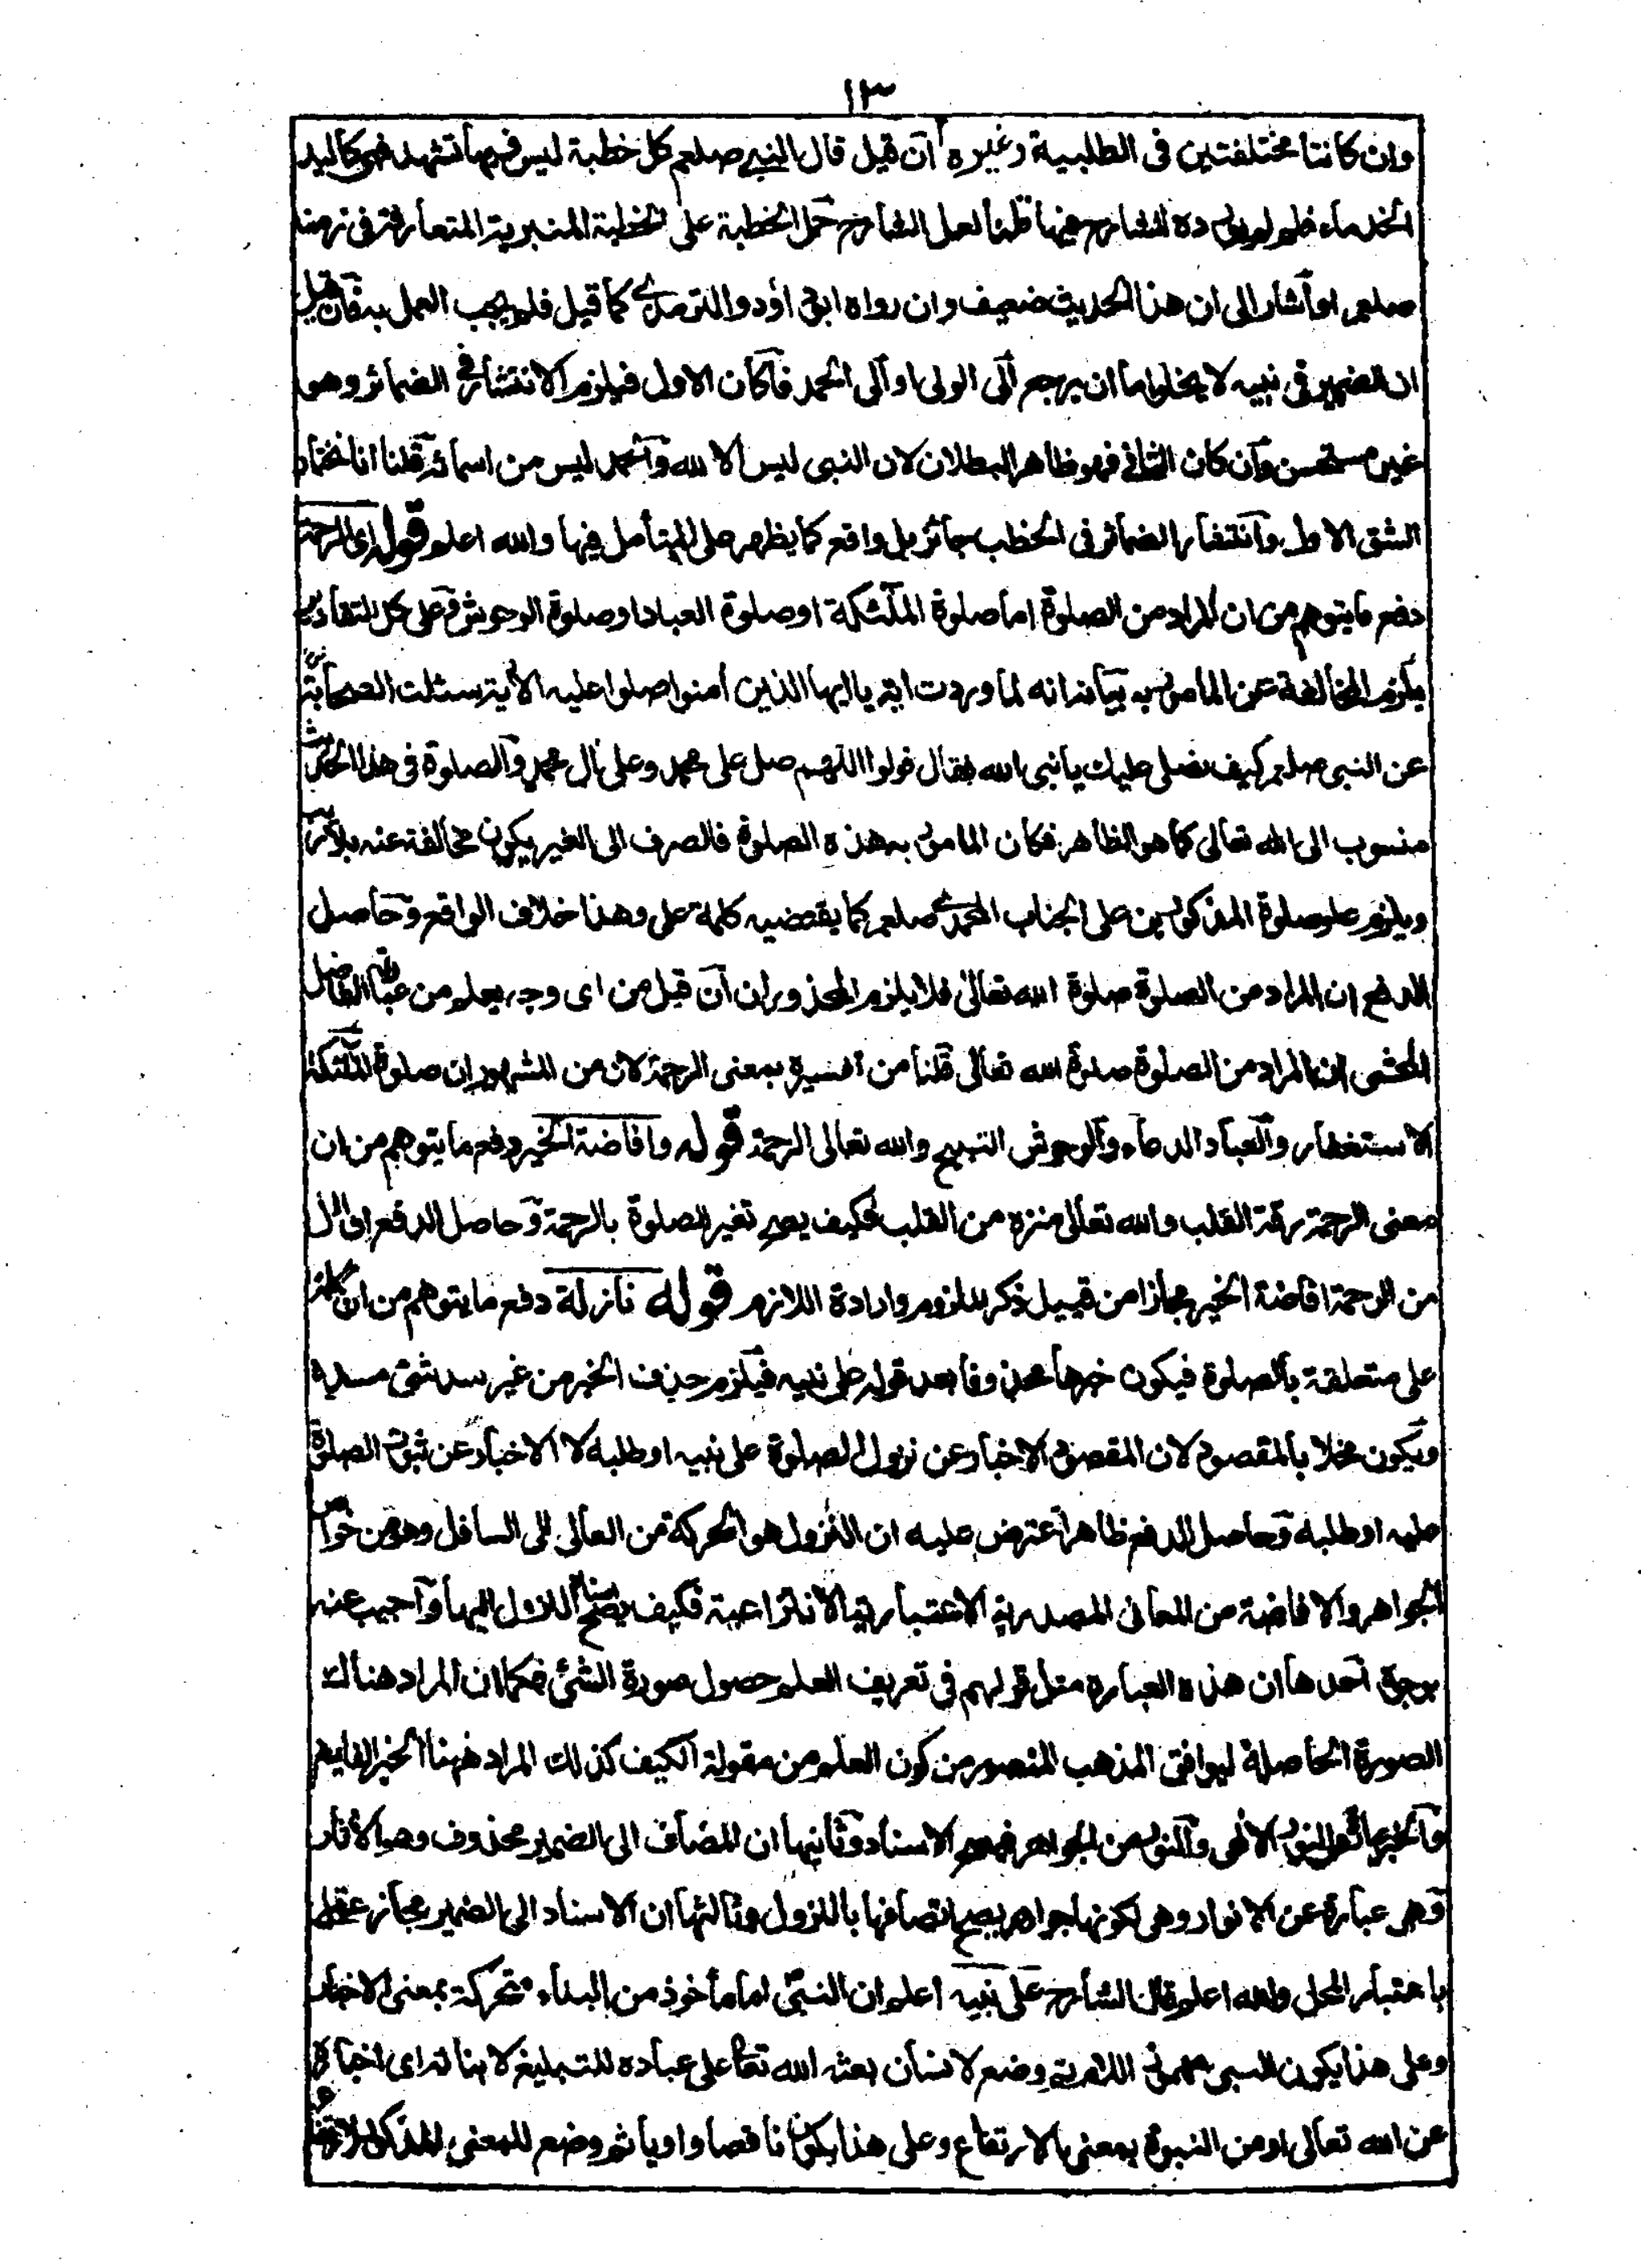 ١٣
وان كانتا مختلفتين فى الطلبية وغيره ان قيل قال النبي صلعم كل خطبة ليس فيها تشهد فهى كاليد
الجذماء فلم لم يورده الشارح فيها قلنا لعل الشارح حمل الخطبة على الخطبة المنبرية المتعارفة فى زمنه
صلعم او أشار الى ان هذا الحديث ضعيف وان رواه ابو داؤد والترمذي كما قيل فلم يجب العمل به فان قيل
ان الضمير فى نبيه لا يخلوا ما ان يرجع الى الولى او الى الحمد فان كان الاول فيلزم الانتشار فى الضمائر وهو
غير مستحسن وان كان الثانى فهو ظاهر البطلان لان النبى ليس الا لله والحمد ليس من اسمائه قلنا انا نختار
الشق الاول وانتشار الضمائر فى الخطب جائز بل واقع كما يظهر على المتأمل فيها والله اعلم قوله اى الرحمة
دفع ما يتوهم من ان المراد من الصلوة اما صلوة الملئكة او صلوة العباد او صلوة الوحوش وعلى كل التقادير
يلزم المخالفة عن المامور به بيانه انه لما وردت اية يا ايها الذين امنوا صلوا عليه الأية سئلت الصحابة
عن النبى صلعم كيف نصلى عليك يا نبى الله فقال قولوا اللهم صل على محمد وعلى ال محمد والصلوة فى هذا الحديث
منسوب الى الله تعالى كما هو الظاهر فكان المامور به هذه الصلوة فالصرف الى الغير يكون مخالفة عنه بلا ريب
ويلزم علو صلوة المذكورين على الجناب المحمدي صلعم كما يقتضيه كلمة على وهذا خلاف الواقع وحاصل
الدفع ان المراد من الصلوة صلوة الله تعالى فلا يلزم المحذوران ان قيل من اى وجه يعلم من عبارة الفاضل
المحشى ان المراد من الصلوة صلوة الله تعالى قلنا من تفسيره بمعنى الرحمة لان من المشهور ان صلوة الملئكة
الاستغفار والعباد الدعاء والوحوش التسبيح والله تعالى الرحمة قوله وافاضة الخير دفع ما يتوهم من ان
معنى الرحمة رقة القلب والله تعالى منزه من القلب فكيف يصح تفير الصلوة بالرحمة وحاصل الدفع ان المراد
من الرحمة افاضة الخير مجازا من قبيل ذكر الملزوم وارادة اللازم قوله نازلة دفع ما يتوهم من ان كلمة
على متعلقة بالصلوة فيكون خبرها محذوفا بعد قوله على نبيه فيلزم حذف الخبر من غير سد شئ مسده
ويكون مخلا بالمقصود لان المقصود الاخبار عن نزول الصلوة على نبيه او طلبه لا الاخبار عن ثبوت الصلوة
عليه او طلبه وحاصل الدفع ظاهر اعترض عليه ان النزول هو الحركة من العالى الى السافل وهو من خواص
الجواهر والافاضة من المعانى المصدرية الاعتبارية الانتزاعية فكيف يصح اسناد النزول اليها واجيب عنه
بوجوه احدها ان هذه العبارة مثل قولهم فى تعريف العلم حصول صورة الشئ فكما ان المراد هناك
الصورة الحاصلة ليوافق المذهب المنصور من كون العلم من مقولة الكيف كذلك المراد ههنا الخير الفايض
والخير هو النور الالهى والنور من الجواهر فيصح الاسناد وثانيها ان المضاف الى الضمير محذوف وهو الأثار
وهى عبارة عن الانوار وهى لكونها جواهر يصح اتصافها بالنزول وثالثها ان الاسناد الى الضمير مجاز عقلى
باعتبار المحل والله اعلم قال الشارح على نبيه اعلم ان النبى اما مأخوذ من النباء متحركة بمعنى الاخبار
وعلى هذا يكون النبى مهموز اللام ثم وضع لانسان بعثه الله تعالى على عباده للتبليغ لانبائه اى اخباره
عن الله تعالى او من النبوة بمعنى الارتفاع وعلى هذا يكون ناقصا واويا ثم وضع للمعنى المذكور